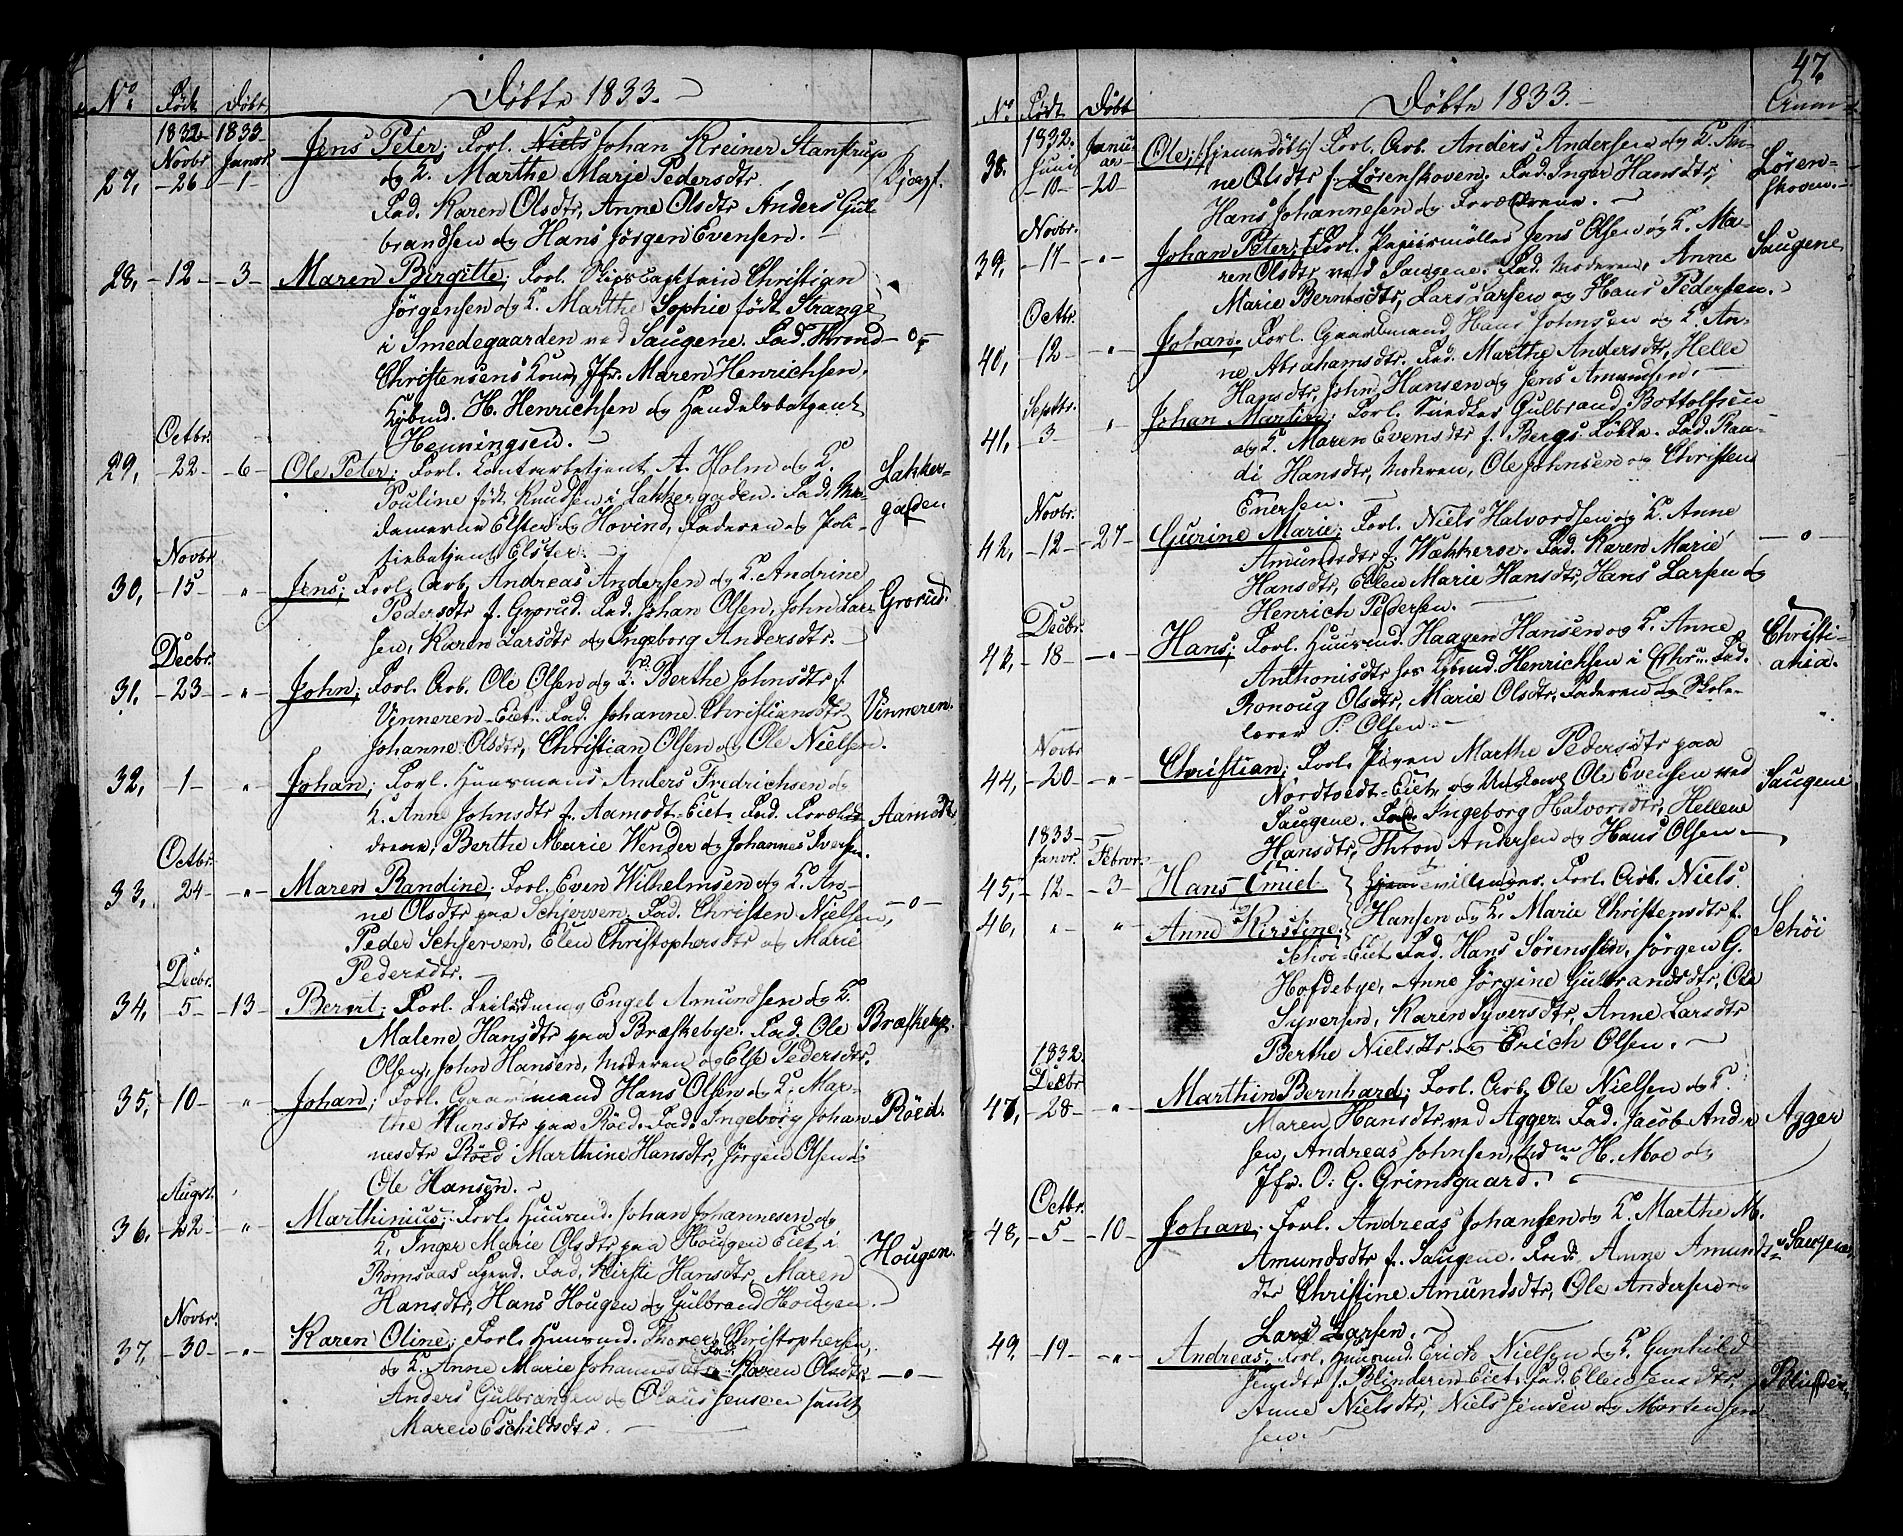 Døbte 1833.
No. Født Døbt
1832 1833
Novbr. Januar
27, 26 1 Jens Peter; Forl. Niels Johan Kreiner Stanstrup
og K. Marthe Marie Pedersdtr
Fad. Karen Olsdtr, Anne Olsdtr Anders Gul-
brandsen og Hans Jørgen Evensen.
28, 12 3 Maren Birgitte; Forl. Skipscaptain Christian
Jørgensen og K. Marthe Sophie født Strange
i Smedegaarden ved Saugene. Fad. Thrond -o-
Christensens Kone, Jfr. Maren Henrichsen,
Kjbmd. H. Henrichsen og Handelsbetjent
Henningsen.
Octbr.
29, 22 6 Ole Peter; Forl. Contorbetjent A. Holm og K. Lakker-
Pouline født Knudsen i Lakkergaden. Fad. Ma- gaden.
damerne Elster og Hovind, Faderen og Poli-
tiebetjent Elster.
Novbr.
30, 15 " Jens; Forl. Arb. Andreas Andersen og K. Andrine
Pedersdtr f. Grorud. Fad. Johan Olsen, John Lar- Grorud.
sen, Karen Larsdtr og Ingeborg Andersdtr.
Decbr.
31, 23 " John; Forl. Arb. Ole Olsen og K. Berthe Johnsdtr f.
Vinneren-Eiet. Fad. Johanne Christiansdtr Vinneren.
Johanne Olsdtr, Christian Olsen og Ole Nielsen.
32, 1 " Johan; Forl. Huusmand Anders Fredrichsen og
K. Anne Johnsdtr f. Aamodt-Eiet. Fad. Foræl- Aamodt
drene, Berthe Marie Wender og Johannes Iversen.
Octbr.
33, 24 " Maren Randine; Forl. Even Wilhelmsen og K. An-
ne Olsdtr paa Schjerven. Fad. Christen Nielsen, -o-
Peder Schjerven, Elen Christophersdtr og Marie
Pedersdtr.
Decbr.
34, 5 13 Bernt; Forl. Leilending Engel Amundsen og K.
Malene Hansdtr paa Bræskebye. Fad. Ole Bræskebye.
Olsen, John Hansen, Moderen og Else Pedersdtr.
35, 10 " Johan; Forl. Gaardmand Hans Olsen og K. Mar-
the Hansdtr paa Röed. Fad. Ingeborg Johan- Röed.
nesdtr Röed Marthine Hansdtr, Jørgen Olsen og
Ole Hansen.
Augst.
36, 22 " Marthinius; Forl. Huusmd. Johan Johannesen og
K. Inger Marie Olsdtr paa Hougen Eiet i Hougen.
Romsaas Egend. Fad. Kirsti Hansdtr, Maren
Hansdtr, Hans Hougen og Gulbrand Hougen.
Novbr.
37, 30 " Karen Oline; Forl. Huusmd. Thorer Christophersen,
og K. Anne Marie Johannesdtr Fad. Karen Olsdtr -o-
Anders Gulbransen og Olaus Jensen samt
Maren Eschildsdtr.
47.
Døbte 1833.
No. Født Døbt Anm.
1832. Janu-
Juni ar
38. 10 20 Ole; /:hjemmedøbt:/ Forl. Arb. Anders Andersen og K. An-
ne Olsdtr f. Lørenskoven. Fad. Inger Hansdtr, Løren-
Hans Johannesen og Forældrene. skoven.
Novbr.
39, 17 " Johan Peter; Forl. Papiirmøller Jens Olsen og K. Ma-
ren Olsdtr ved Saugene. Fad. Moderen, Anne Saugene
Marie Berntsdtr, Lars Larsen og Hans Pedersen.
Octbr.
40, 12 " Johan; Forl. Gaardmand Hans Johnsen og K. An-
ne Abrahamsdtr. Fad. Marthe Andersdtr, Helle
Hansdtr, John Hansen og Jens Amundsen.
Septbr.
41, 3 " Johan Martin; Forl. Snedker Gulbrand Bottolfsen
og K. Maren Evensdtr f. Bergs Løkke. Fad. Ran-
di Hansdtr, Moderen, Ole Johnsen og Christen
Enersen.
Novbr.
42, 12 27 Gurine Marie; Forl. Niels Halvordsen og K. Anne
Amundsdtr f. Wækkerøe. Fad. Karen Marie -o-
Hansdtr, Ellen Marie Hansdtr, Hans Larsen og
Henrich Pedersen.
Decbr.
43, 18 " Hans; Forl. Huusmd. Haagen Hansen og K. Anne Christi-
Anthonisdtr hos Kjbmd. Henrichsen i Chr. Fad. ania.
Ronoug Olsdtr, Marie Olsdtr, Faderen og Skole-
lærer P. Olsen.
Novbr
44, 20 " Christian; Forl. Pigen Marthe Pedersdtr paa
Nordtvedt-Eiet, og Ungkarl Ole Evensen ved Saugene
Saugene. Fad. Ingeborg Halvorsdtr, Hellene
Hansdtr, Thron Andersen og Hans Olsen.
1833
Janvr. Februar.
45, 12 3 Hans Emiel Tvillinger. Forl. Arb. Niels
46, " " og Anne Kirstine. Hansen og K. Marie Christensdtr f. Schöi
Schöi-Eiet. Fad. Hans Sørenssen, Jørgen G.
Hofdebye, Anne Jørgine Gulbrandsdtr, Ole
Syversen, Karen Syversdtr, Anne Larsdtr
Berthe Nielsdtr og Erich Olsen.
1832.
Decbr
47, 28 " Marthin Bernhard; Forl. Arb. Ole Nielsen og K.
Maren Hansdtr ved Agger. Fad. Jacob Ander- Agger
sen, Andreas Johnsen, H. Moe og
Jfr. O. G. Grimsgaard.
Octbr.
48, 5 10 Johan; Forl. Andreas Johansen og K. Marthe M.
Amundsdtr f. Saugene. Fad. Anne Amunds- Saugene.
dtr Christine Amundsdtr, Ole Andersen og
Lars Larsen.
49, 19 " Andreas; Forl. Huusmd. Erich Nielsen og K. Gunhild
Jensdtr f. Blinderen Eiet. Fad. Ellen Jensdtr,
Anne Nielsdtr, Niels Jensen og Morten Jen-
sen.